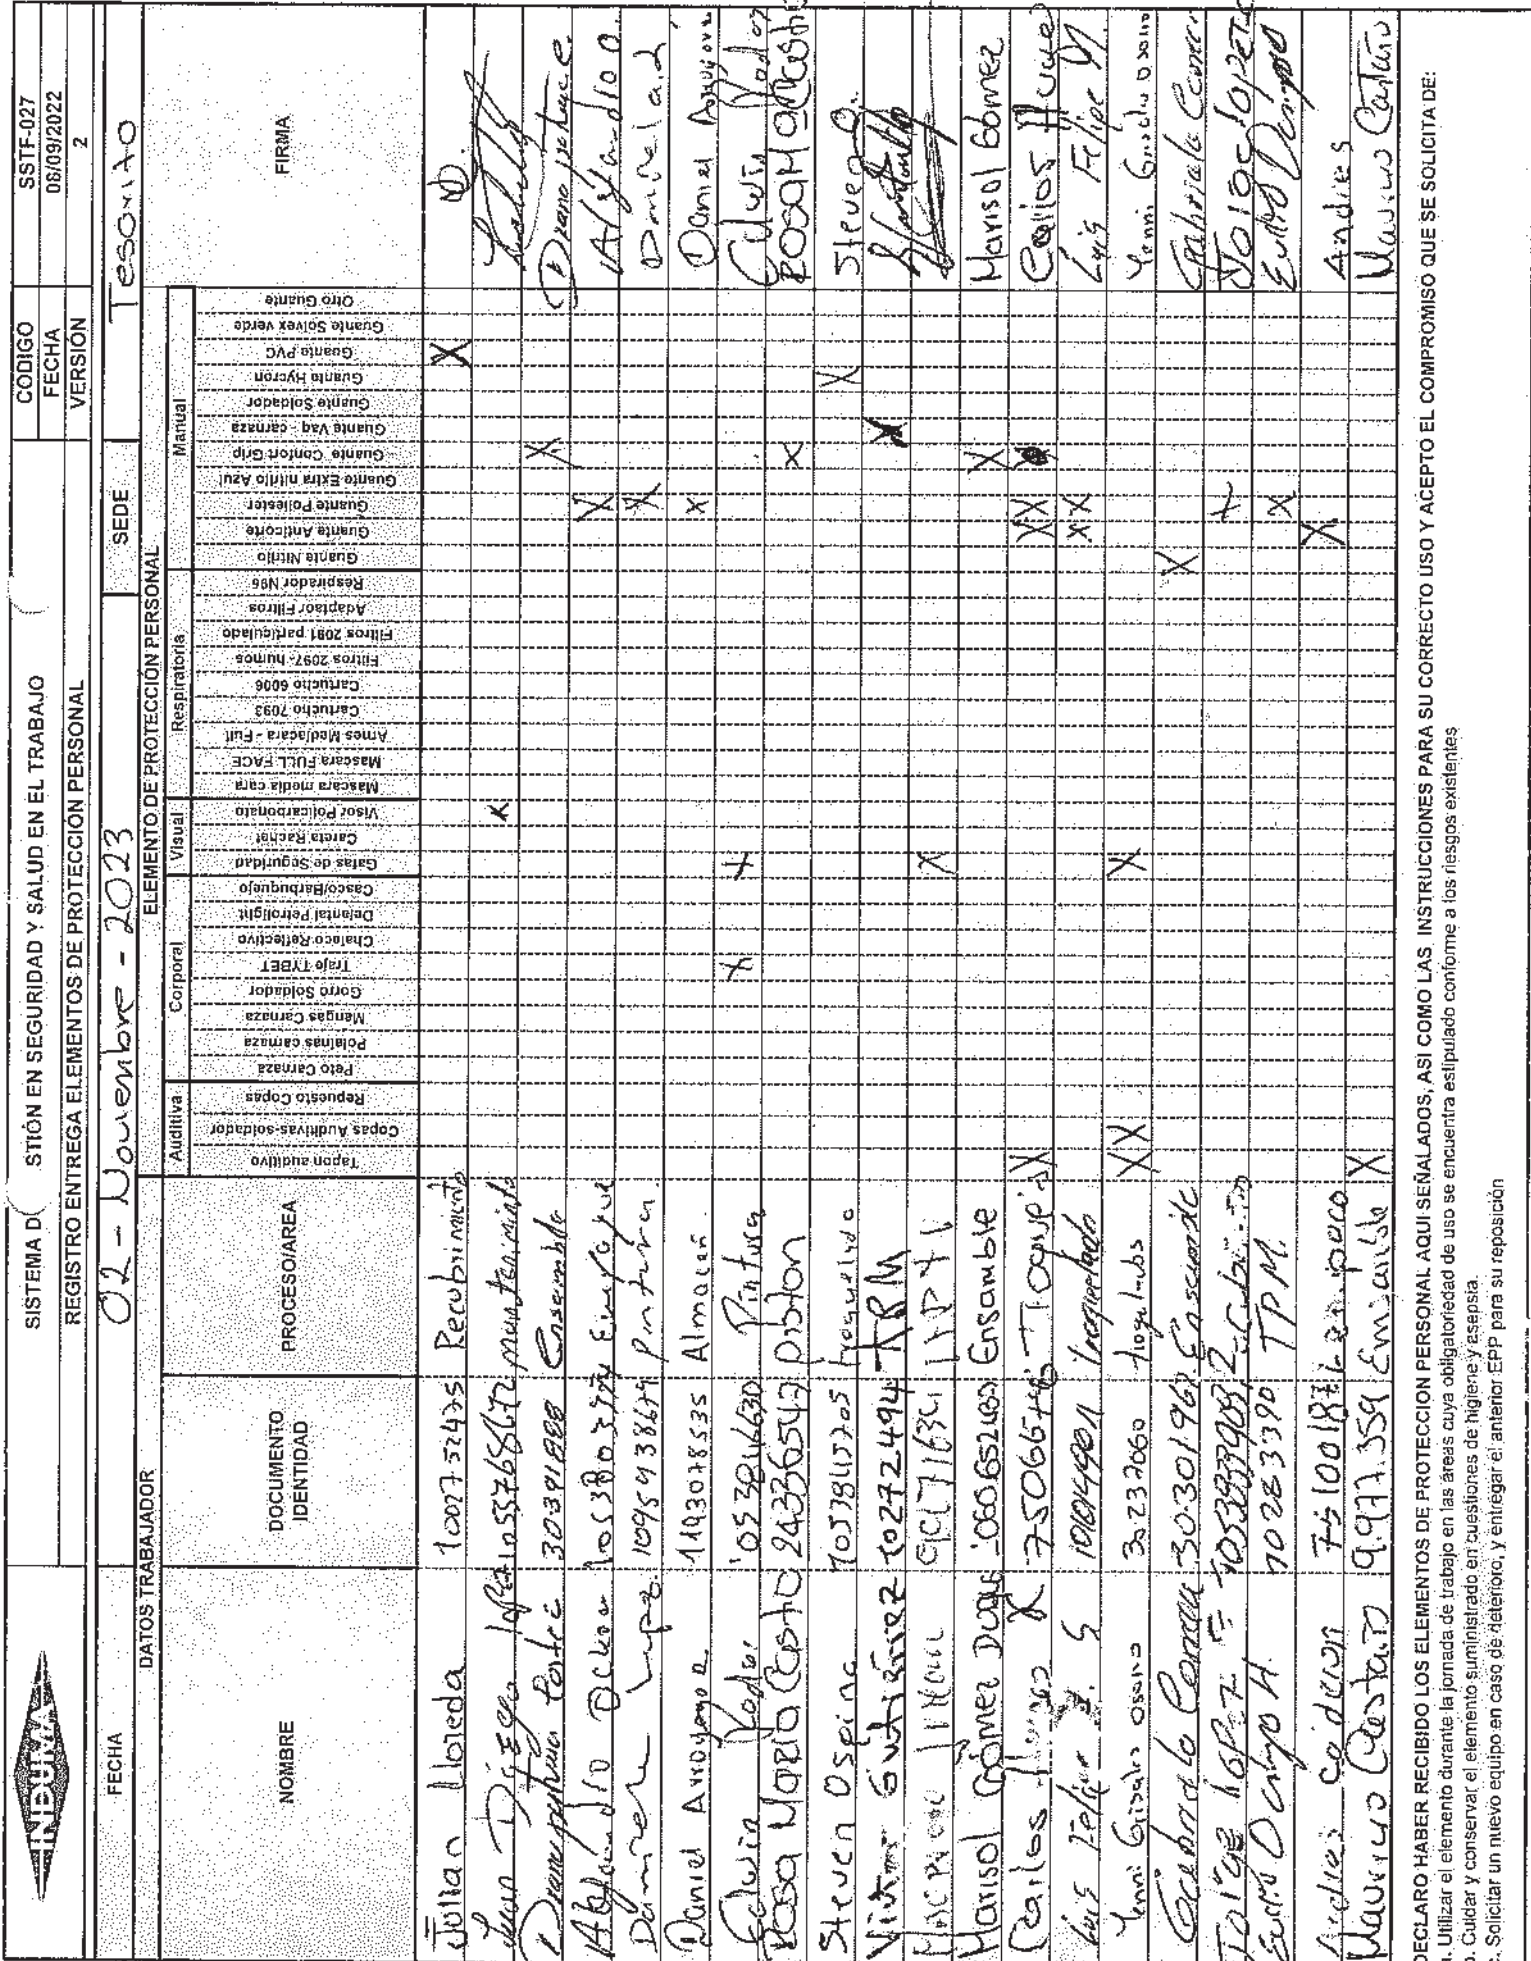 INDUMA
SISTEMA D STIÓN EN SEGURIDAD Y SALUD EN EL TRABAJO
REGISTRO ENTREGA ELEMENTOS DE PROTECCIÓN PERSONAL
CODIGO SSTF-027
FECHA 06/09/2022
VERSIÓN 2
FECHA 02 - Novienbre - 2023 SEDE Tesorito
DATOS TRABAJADOR ELEMENTO DE PROTECCIÓN PERSONAL
NOMBRE DOCUMENTO IDENTIDAD PROCESO/AREA Auditiva Corporal Visual Respiratoria Manual FIRMA
Tapon auditivo
Copas Auditivas-soldador
Repuesto Copas
Peto Carnaza
Polainas carnaza
Mangas Carnaza
Gorro Soldador
Traje TYBET
Chaleco Reflectivo
Delantal Petrolight
Casco/Barbuquejo
Gafas de Seguridad
Careta Rachet
Visor Policarbonato
Mascara media cara
Mascara FULL FACE
Arnes Mediacara - Full
Cartucho 7093
Cartucho 6006
Filtros 2097- humos
Filtros 2091 particulado
Adaptaor Filtros
Respirador N95
Guante Nitrilo
Guante Anticorte
Guante Poliester
Guante Extra nitrilo Azul
Guante Confort Grip
Guante Vaq - carnaza
Guante Soldador
Guante Hycron
Guante PVC
Guante Solvex verde
Otro Guante
Julian Lloreda 1002752425 Recubrimiento X
Juan Diego 1055768672 mantenimiento x
Diana 30391988 Ensamble X
Alejandro Ochoa Empaque X Alejandro O.
Daniel 1095938679 Pintura. X
Daniel Arroyave 1193078535 Almacén x Daniel Arroyave
Edwin 1053846630 Pintura X + Edwin
Rosa Maria Castro 24336542 piston x ROSA Ma Castr
Steven Ospina 1053845205 troquelado X Steven O.
Gutiérrez 1027272494 X
X
Marisol Gómez Duque Ensamble X Marisol Gómez
Carlos X X XX Carlos
Luis Felipe S Troquelado xx Luis Felipe
Yenni Grisales osorio 30237060 troquelados XX X Yenni Grisales Osorio
Gabriela Correa 30301962 Ensamble X Gabriela Correa
Jorge + Jorge Lopez
Ocampo H. TPM. X
Andres 75100187 X Andres
Mauricio Castaño 9.977.359 Emisarible X Mauricio Castaño
DECLARO HABER RECIBIDO LOS ELEMENTOS DE PROTECCION PERSONAL AQUI SEÑALADOS, ASI COMO LAS INSTRUCCIONES PARA SU CORRECTO USO Y ACEPTO EL COMPROMISO QUE SE SOLICITA DE:
a. Utilizar el elemento durante la jornada de trabajo en las áreas cuya obligatoriedad de uso se encuentra estipulado conforme a los riesgos existentes
b. Cuidar y conservar el elemento suministrado en cuestiones de higiene y asepsia
c. Solicitar un nuevo equipo en caso de deterioro, y entregar el anterior EPP para su reposición